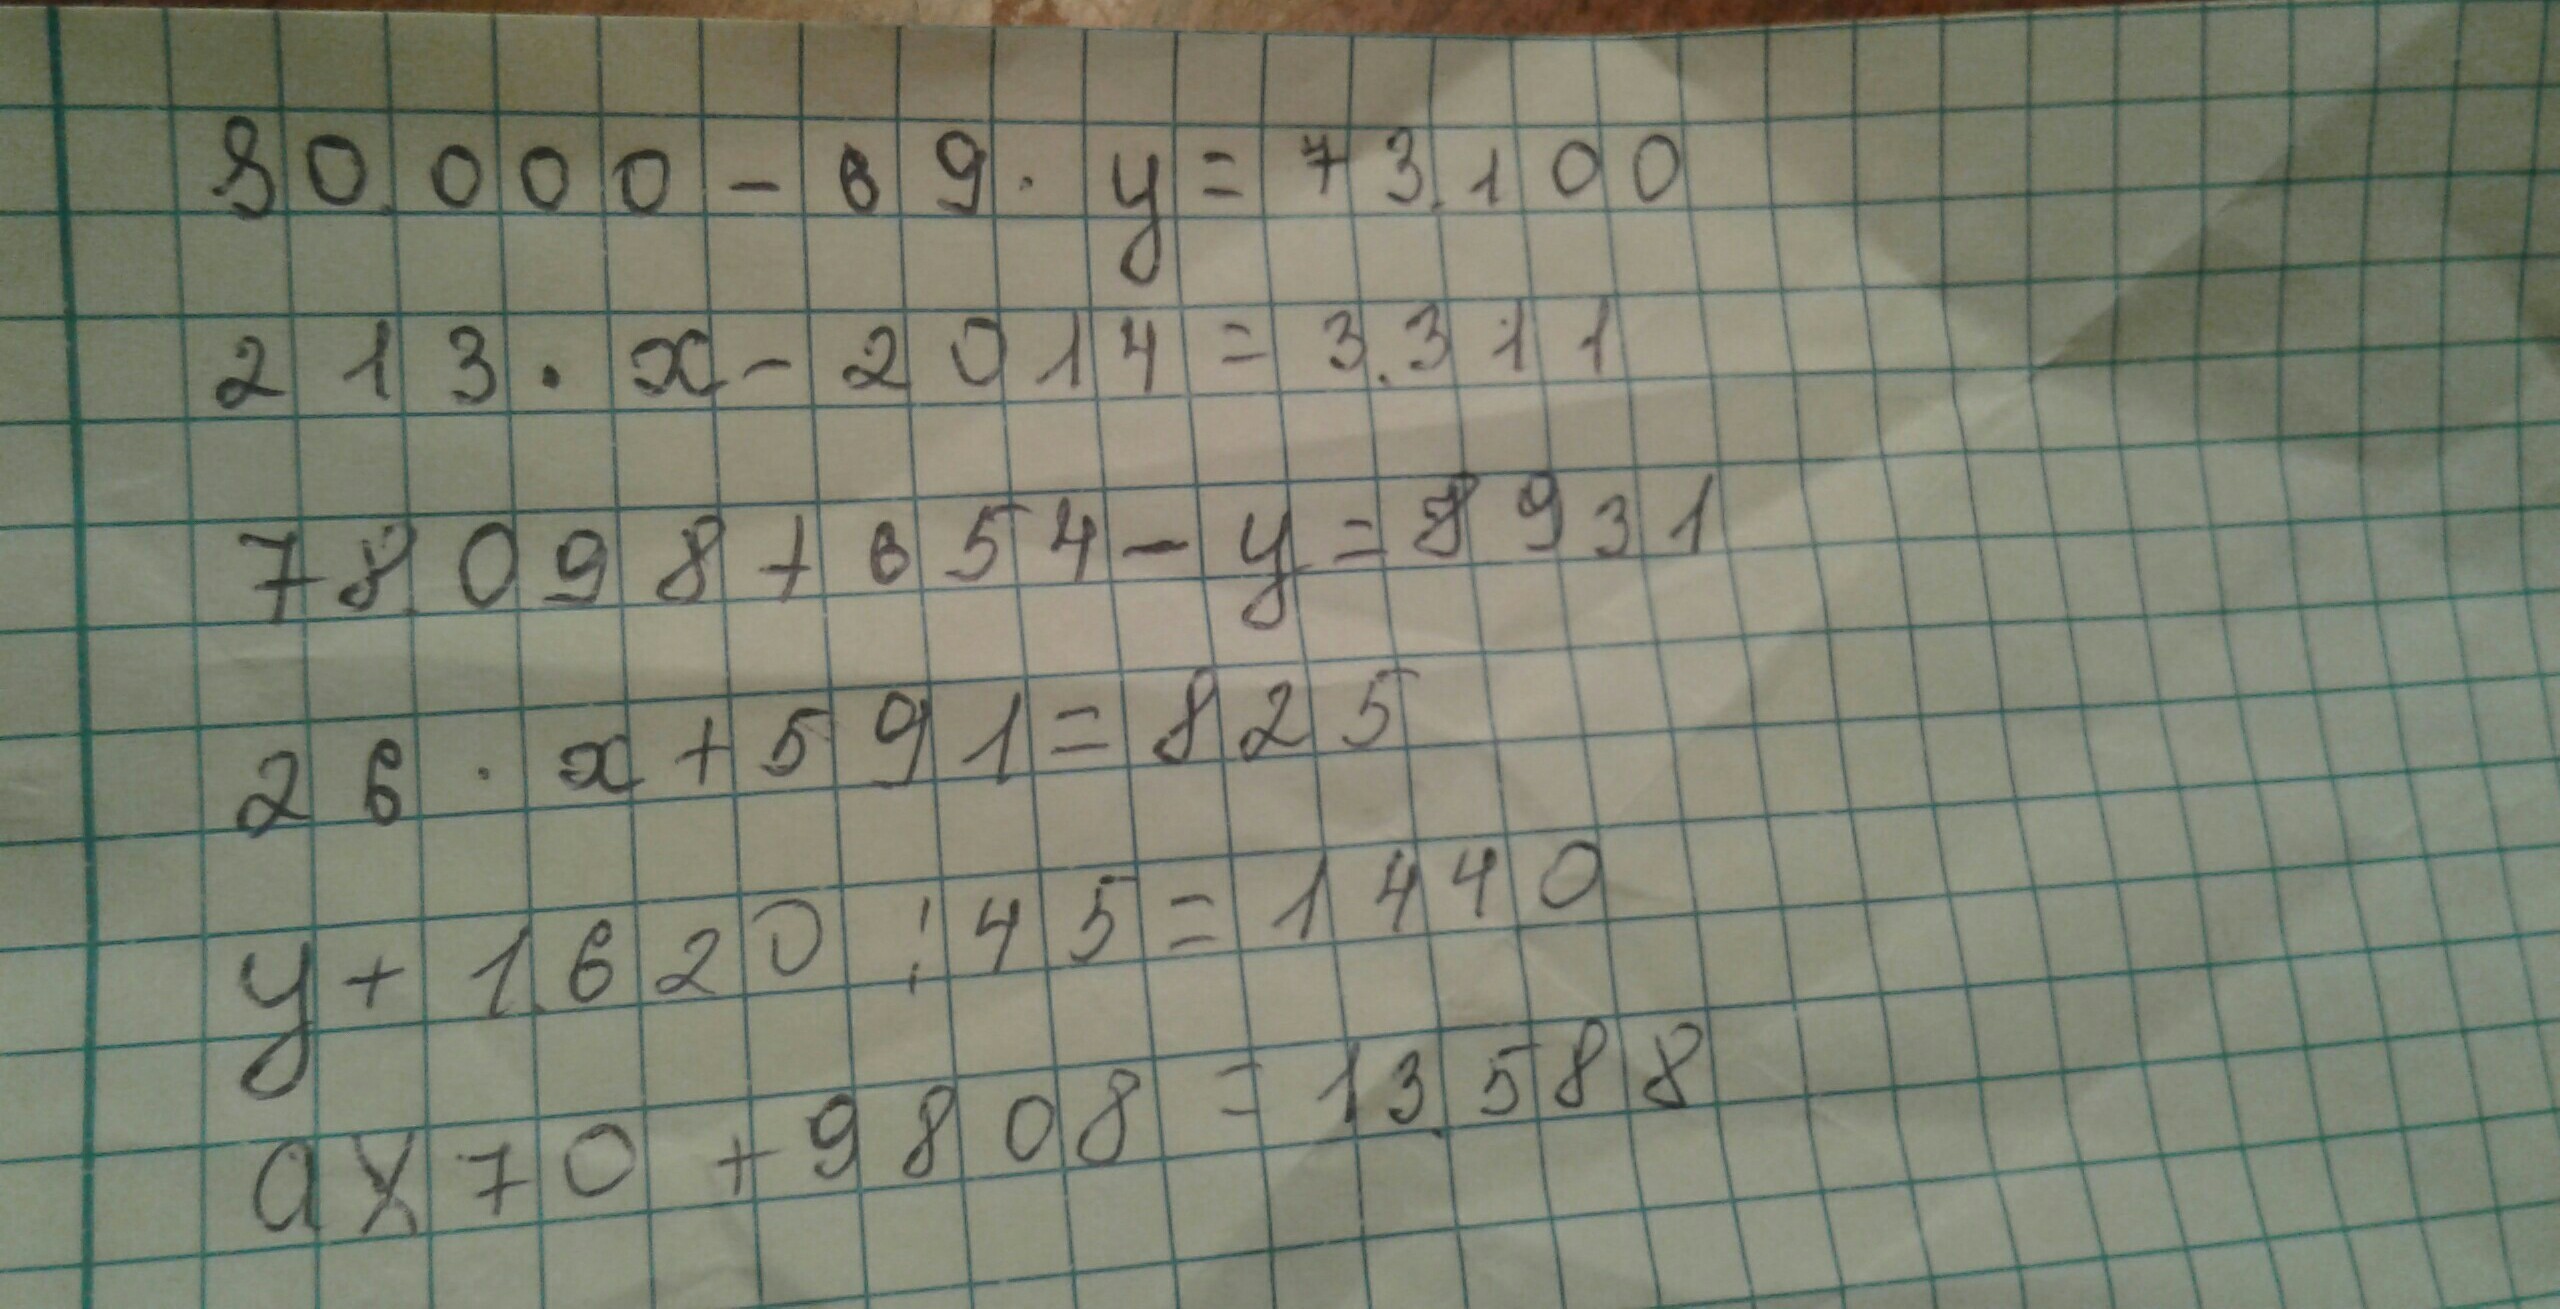 80.000 - 69 · y = 73.100
213 · x - 2014 = 3.311
78.098 + 654 - y = 8931
26 · x + 591 = 825
y + 1.620 : 45 = 1440
a x 70 + 9808 = 13.588